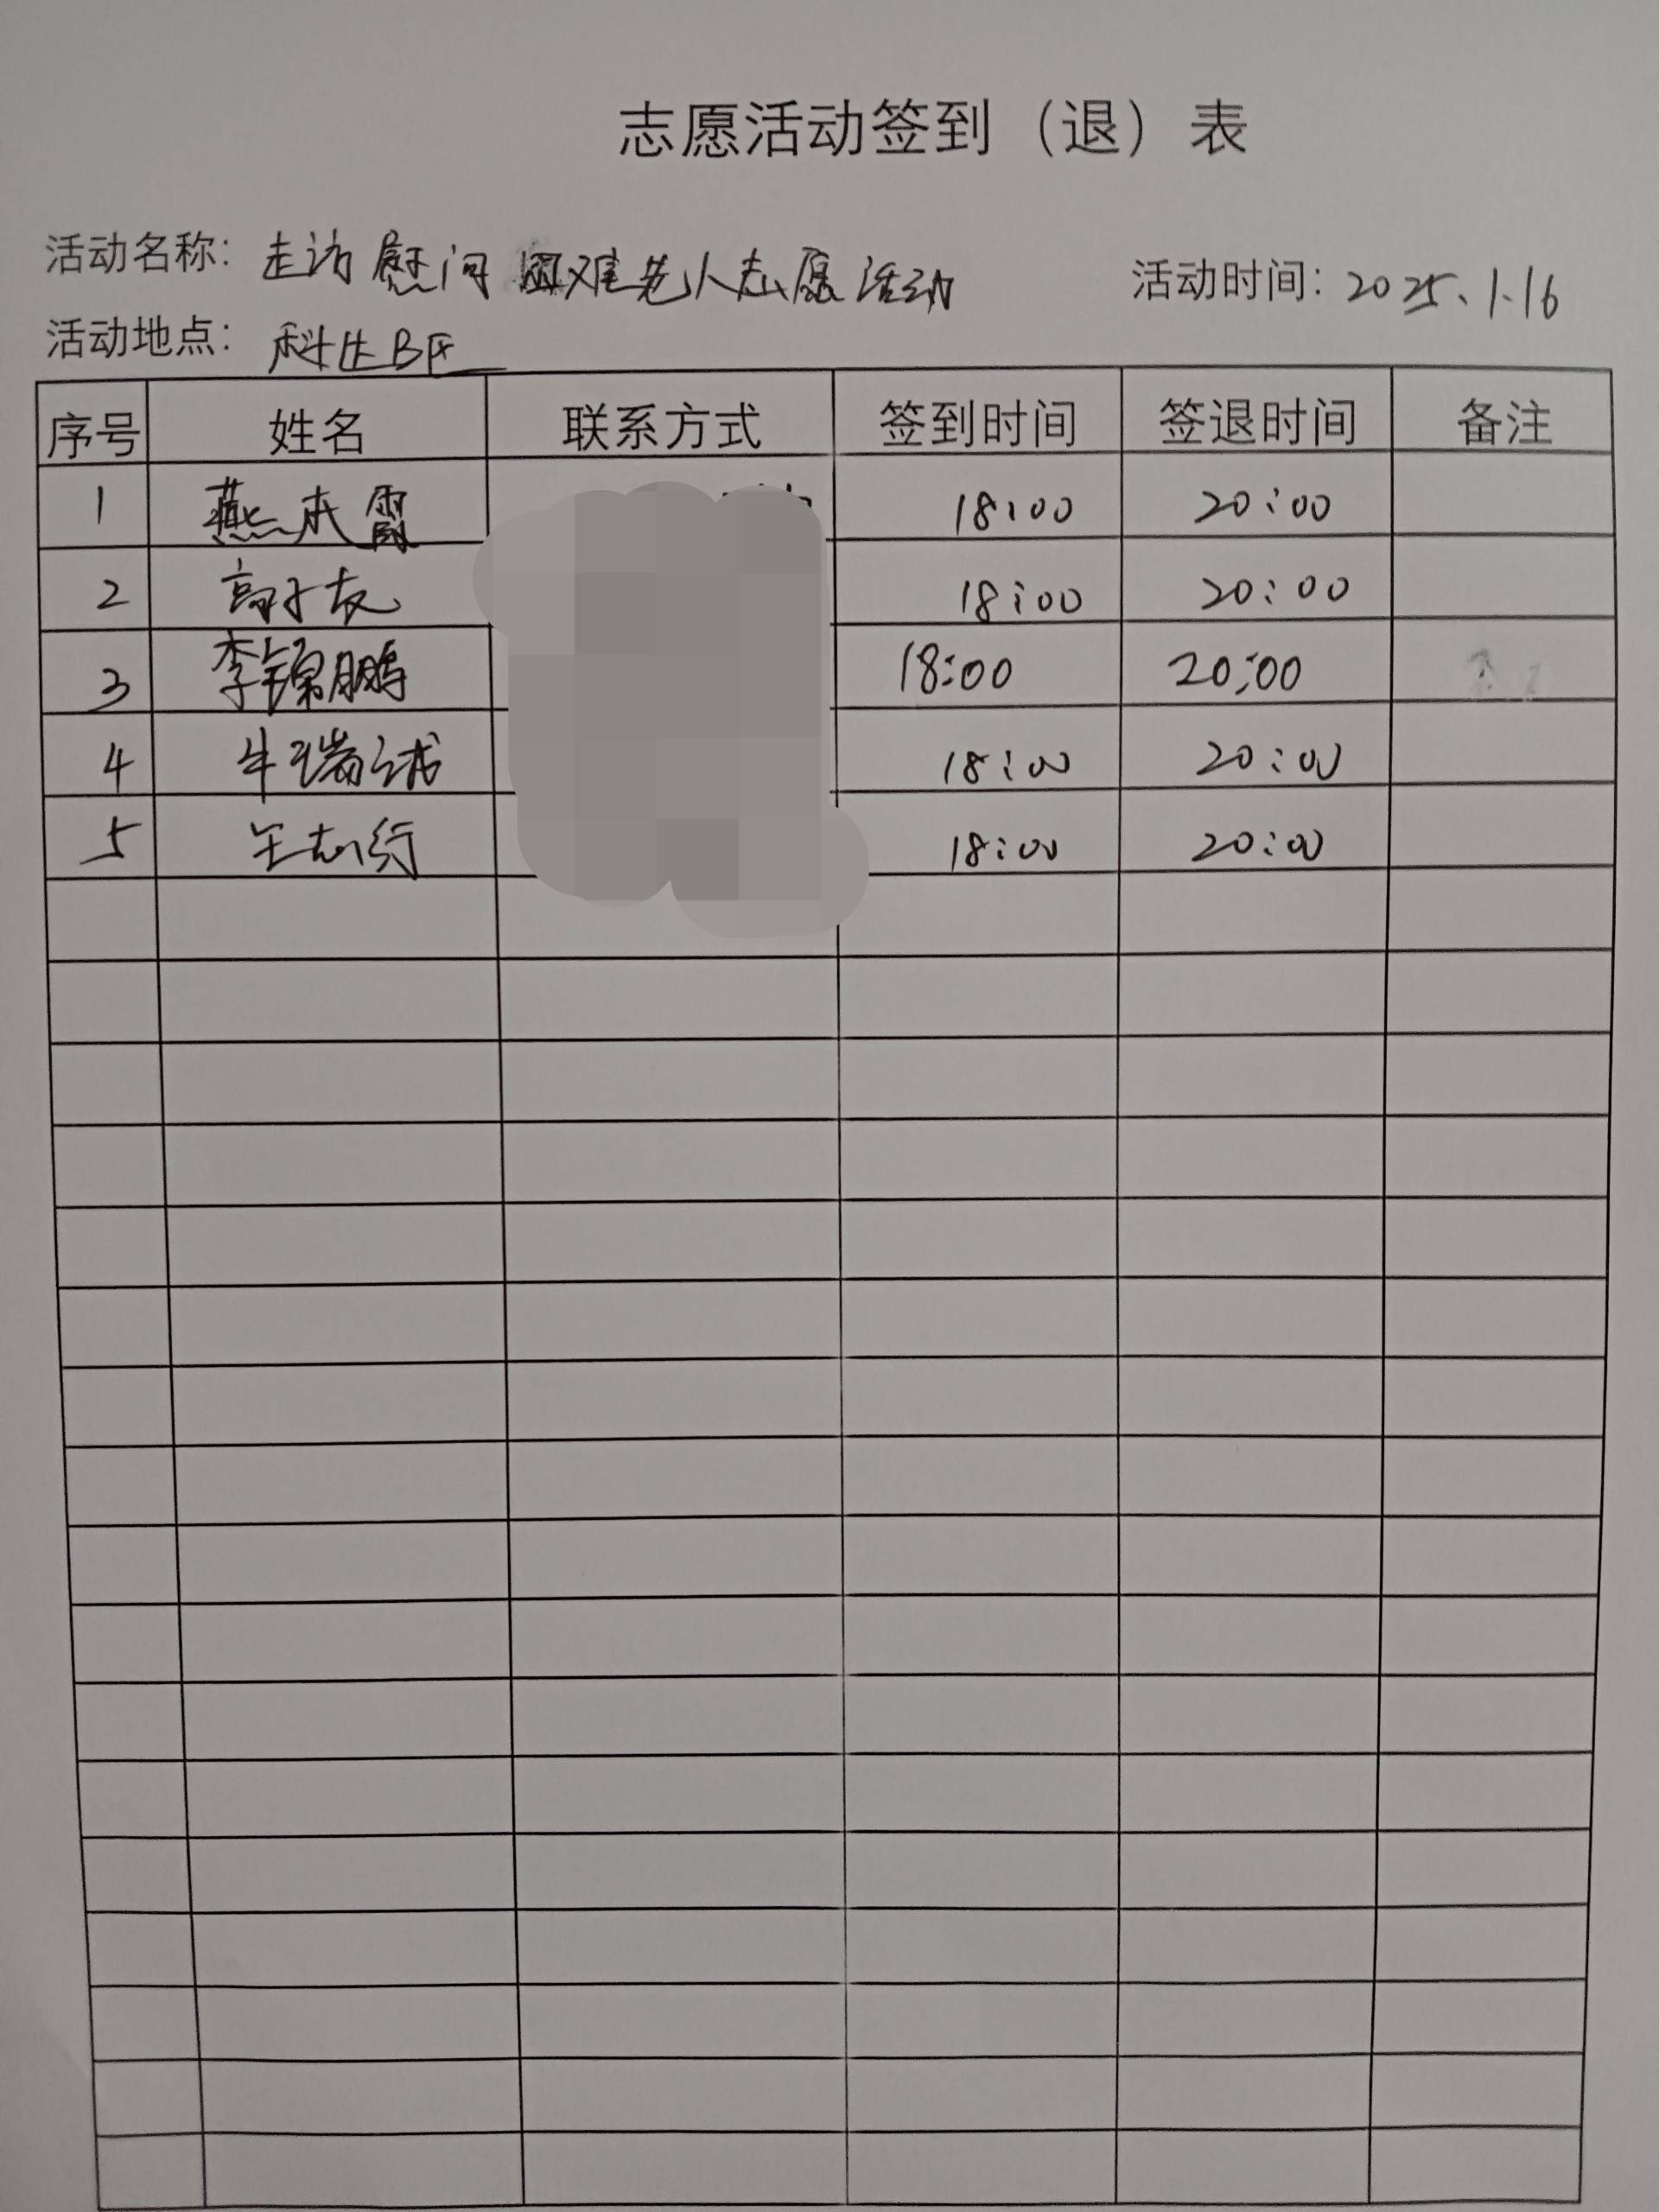 志愿活动签到（退）表
活动名称：走访慰问困难老人志愿活动 活动时间：2025、1.16
活动地点：科仕B区
序号 姓名 联系方式 签到时间 签退时间 备注
1 燕本霄 18:00 20:00
2 高子友 18:00 20:00
3 李锦鹏 18:00 20:00
4 牛瑞斌 18:00 20:00
5 王志衍 18:00 20:00